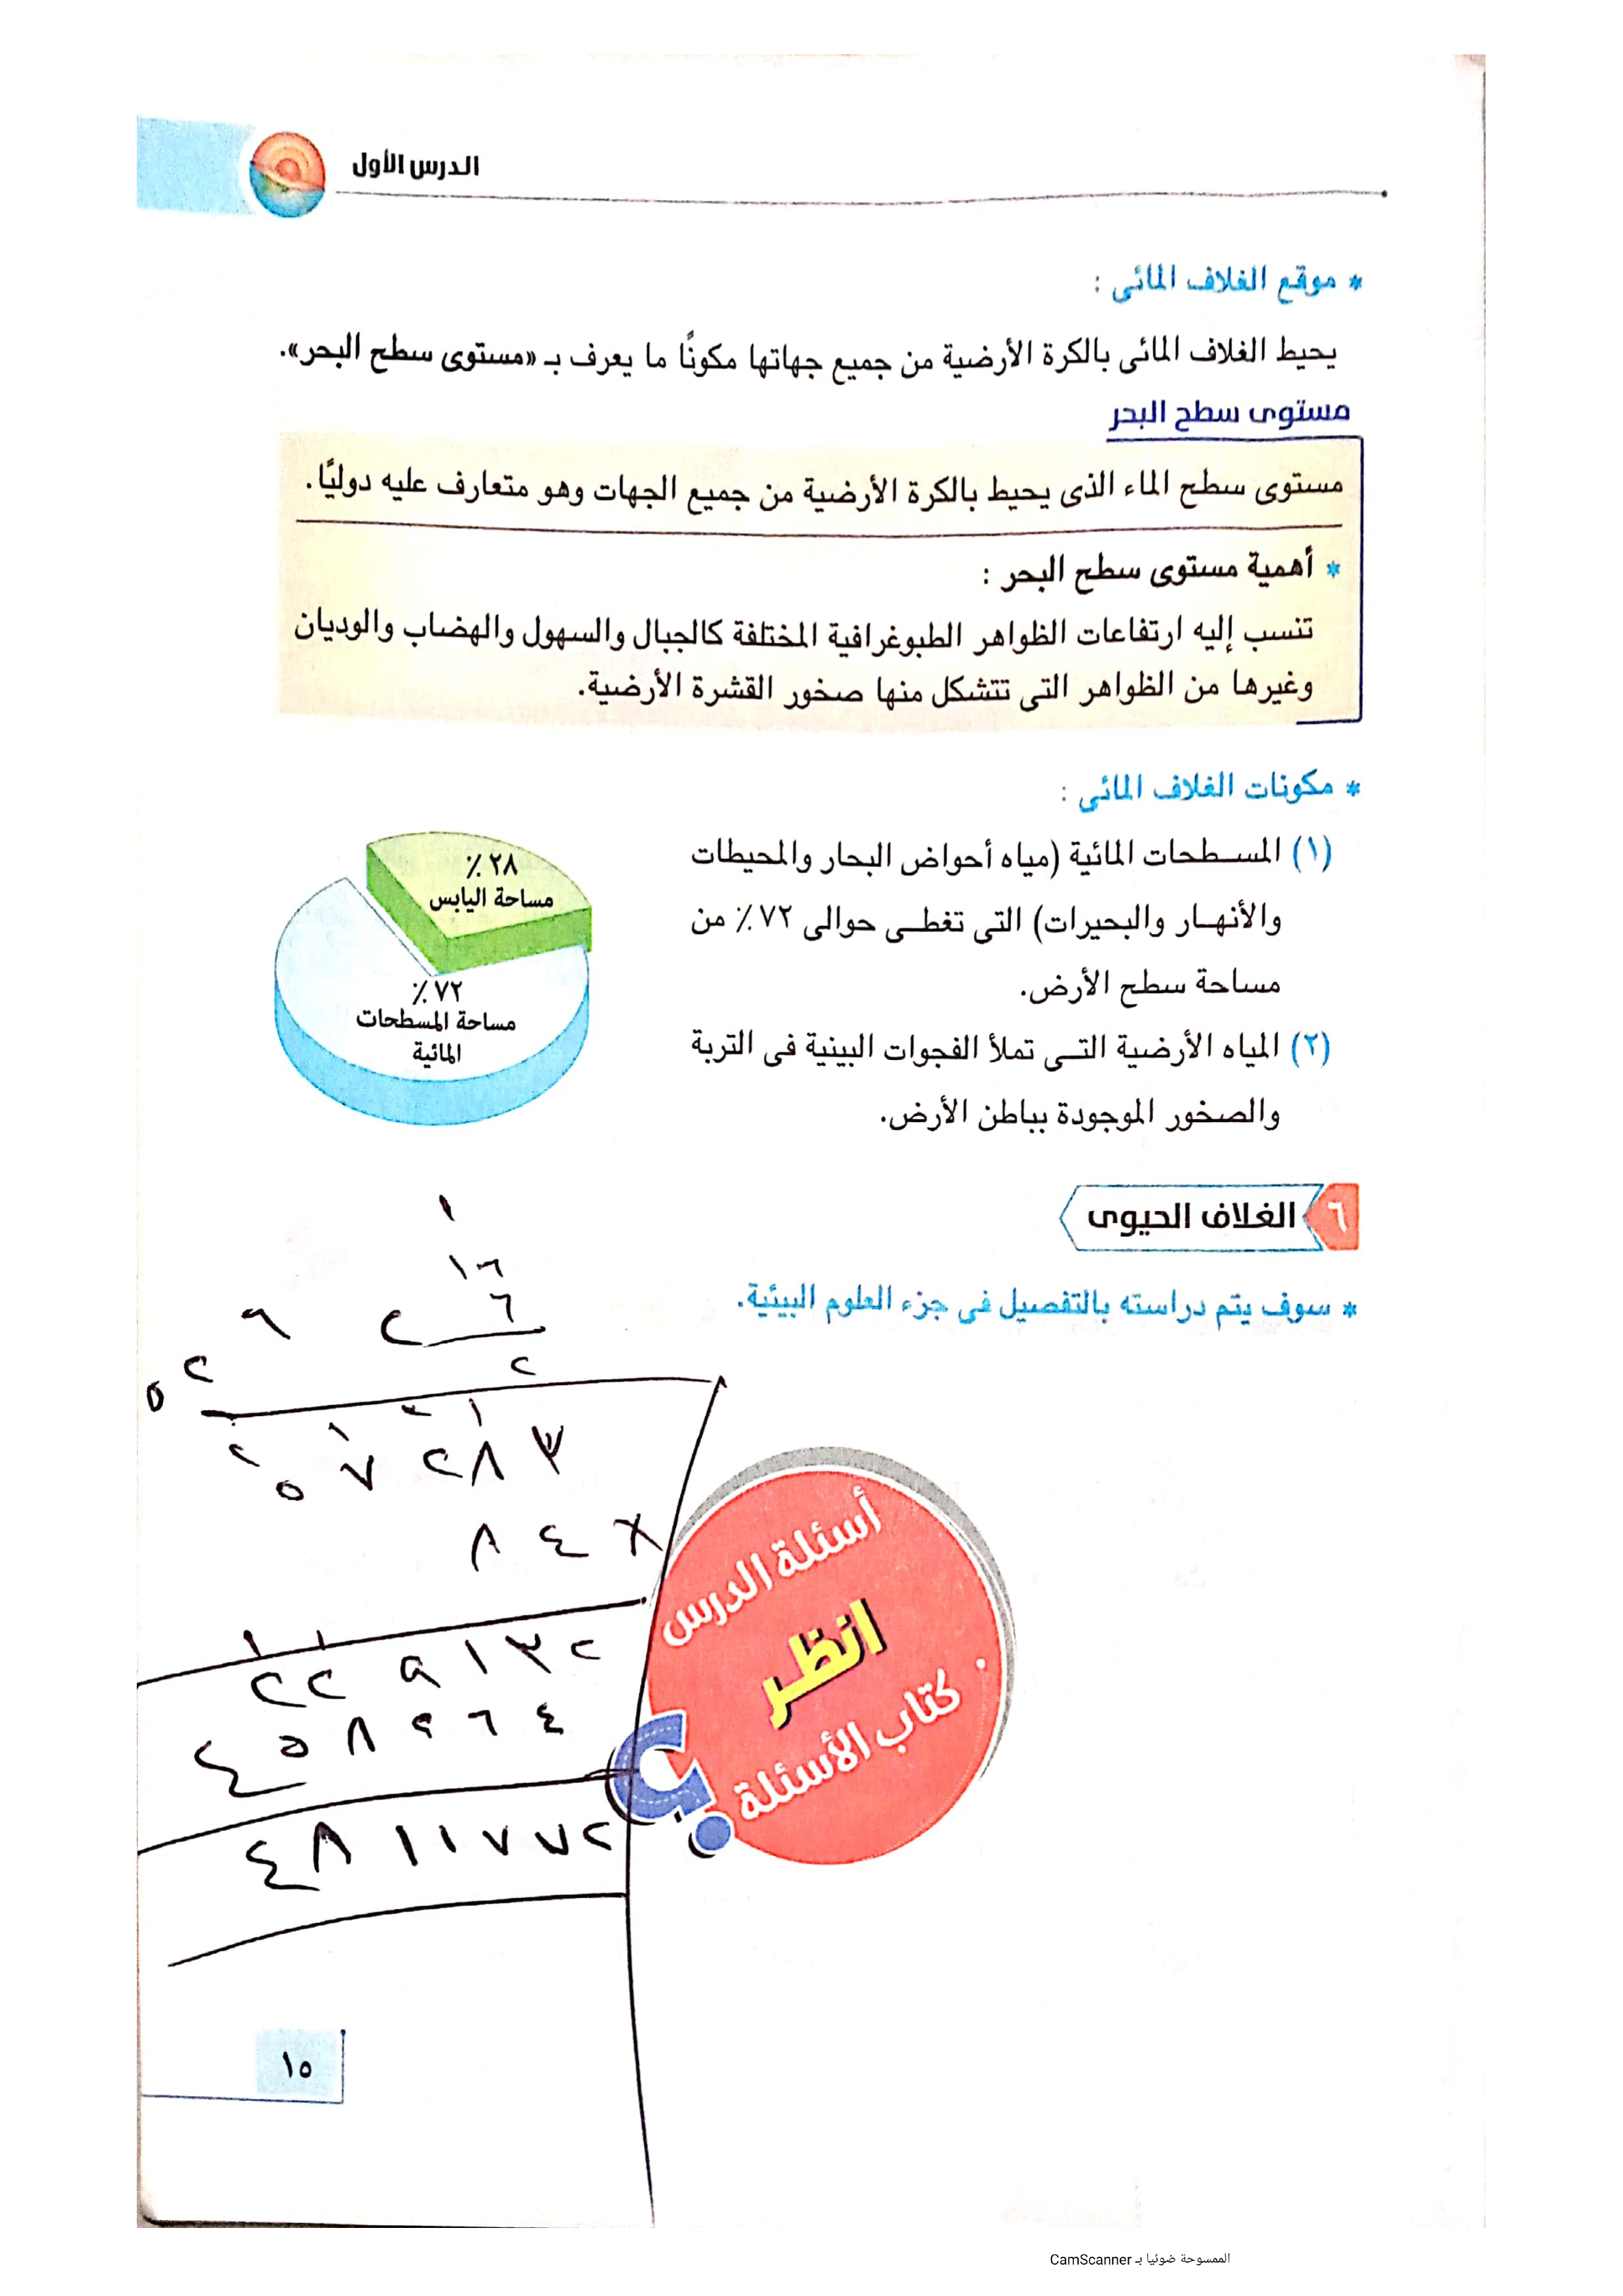 الدرس الأول
* موقع الغلاف المائى :
يحيط الغلاف المائى بالكرة الأرضية من جميع جهاتها مكونًا ما يعرف بـ «مستوى سطح البحر».
مستوى سطح البحر
مستوى سطح الماء الذى يحيط بالكرة الأرضية من جميع الجهات وهو متعارف عليه دوليًا.
* أهمية مستوى سطح البحر :
تنسب إليه ارتفاعات الظواهر الطبوغرافية المختلفة كالجبال والسهول والهضاب والوديان
وغيرها من الظواهر التى تتشكل منها صخور القشرة الأرضية.
* مكونات الغلاف المائى :
(١) المسطحات المائية (مياه أحواض البحار والمحيطات
والأنهار والبحيرات) التى تغطى حوالى ٧٢٪ من
مساحة سطح الأرض.
(٢) المياه الأرضية التى تملأ الفجوات البينية فى التربة
والصخور الموجودة بباطن الأرض.
٢٨٪
مساحة اليابس
٧٢٪
مساحة المسطحات
المائية
٦ الغلاف الحيوى
* سوف يتم دراسته بالتفصيل فى جزء العلوم البيئية.
١
١٦
٦
٢
٩
٢
٢
٥
٥٧٢٨٣
٨٤ ×
٢٢٩١٣٢
٤٨١١٧٧٢
أسئلة الدرس
انظر
كتاب الأسئلة
؟
١٥
الممسوحة ضوئيا بـ CamScanner